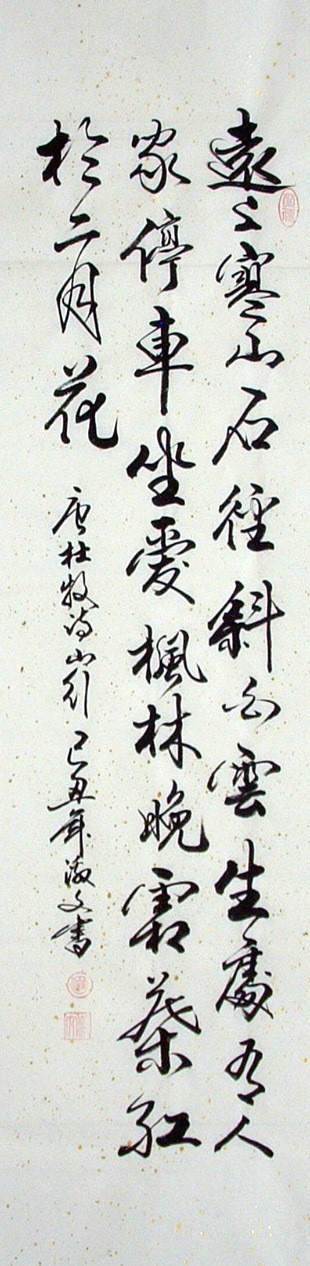 遠上寒山石徑斜白雲生處有人
家停車坐愛楓林晚霜葉紅
於二月花
唐杜牧詩山行 己丑年 文書